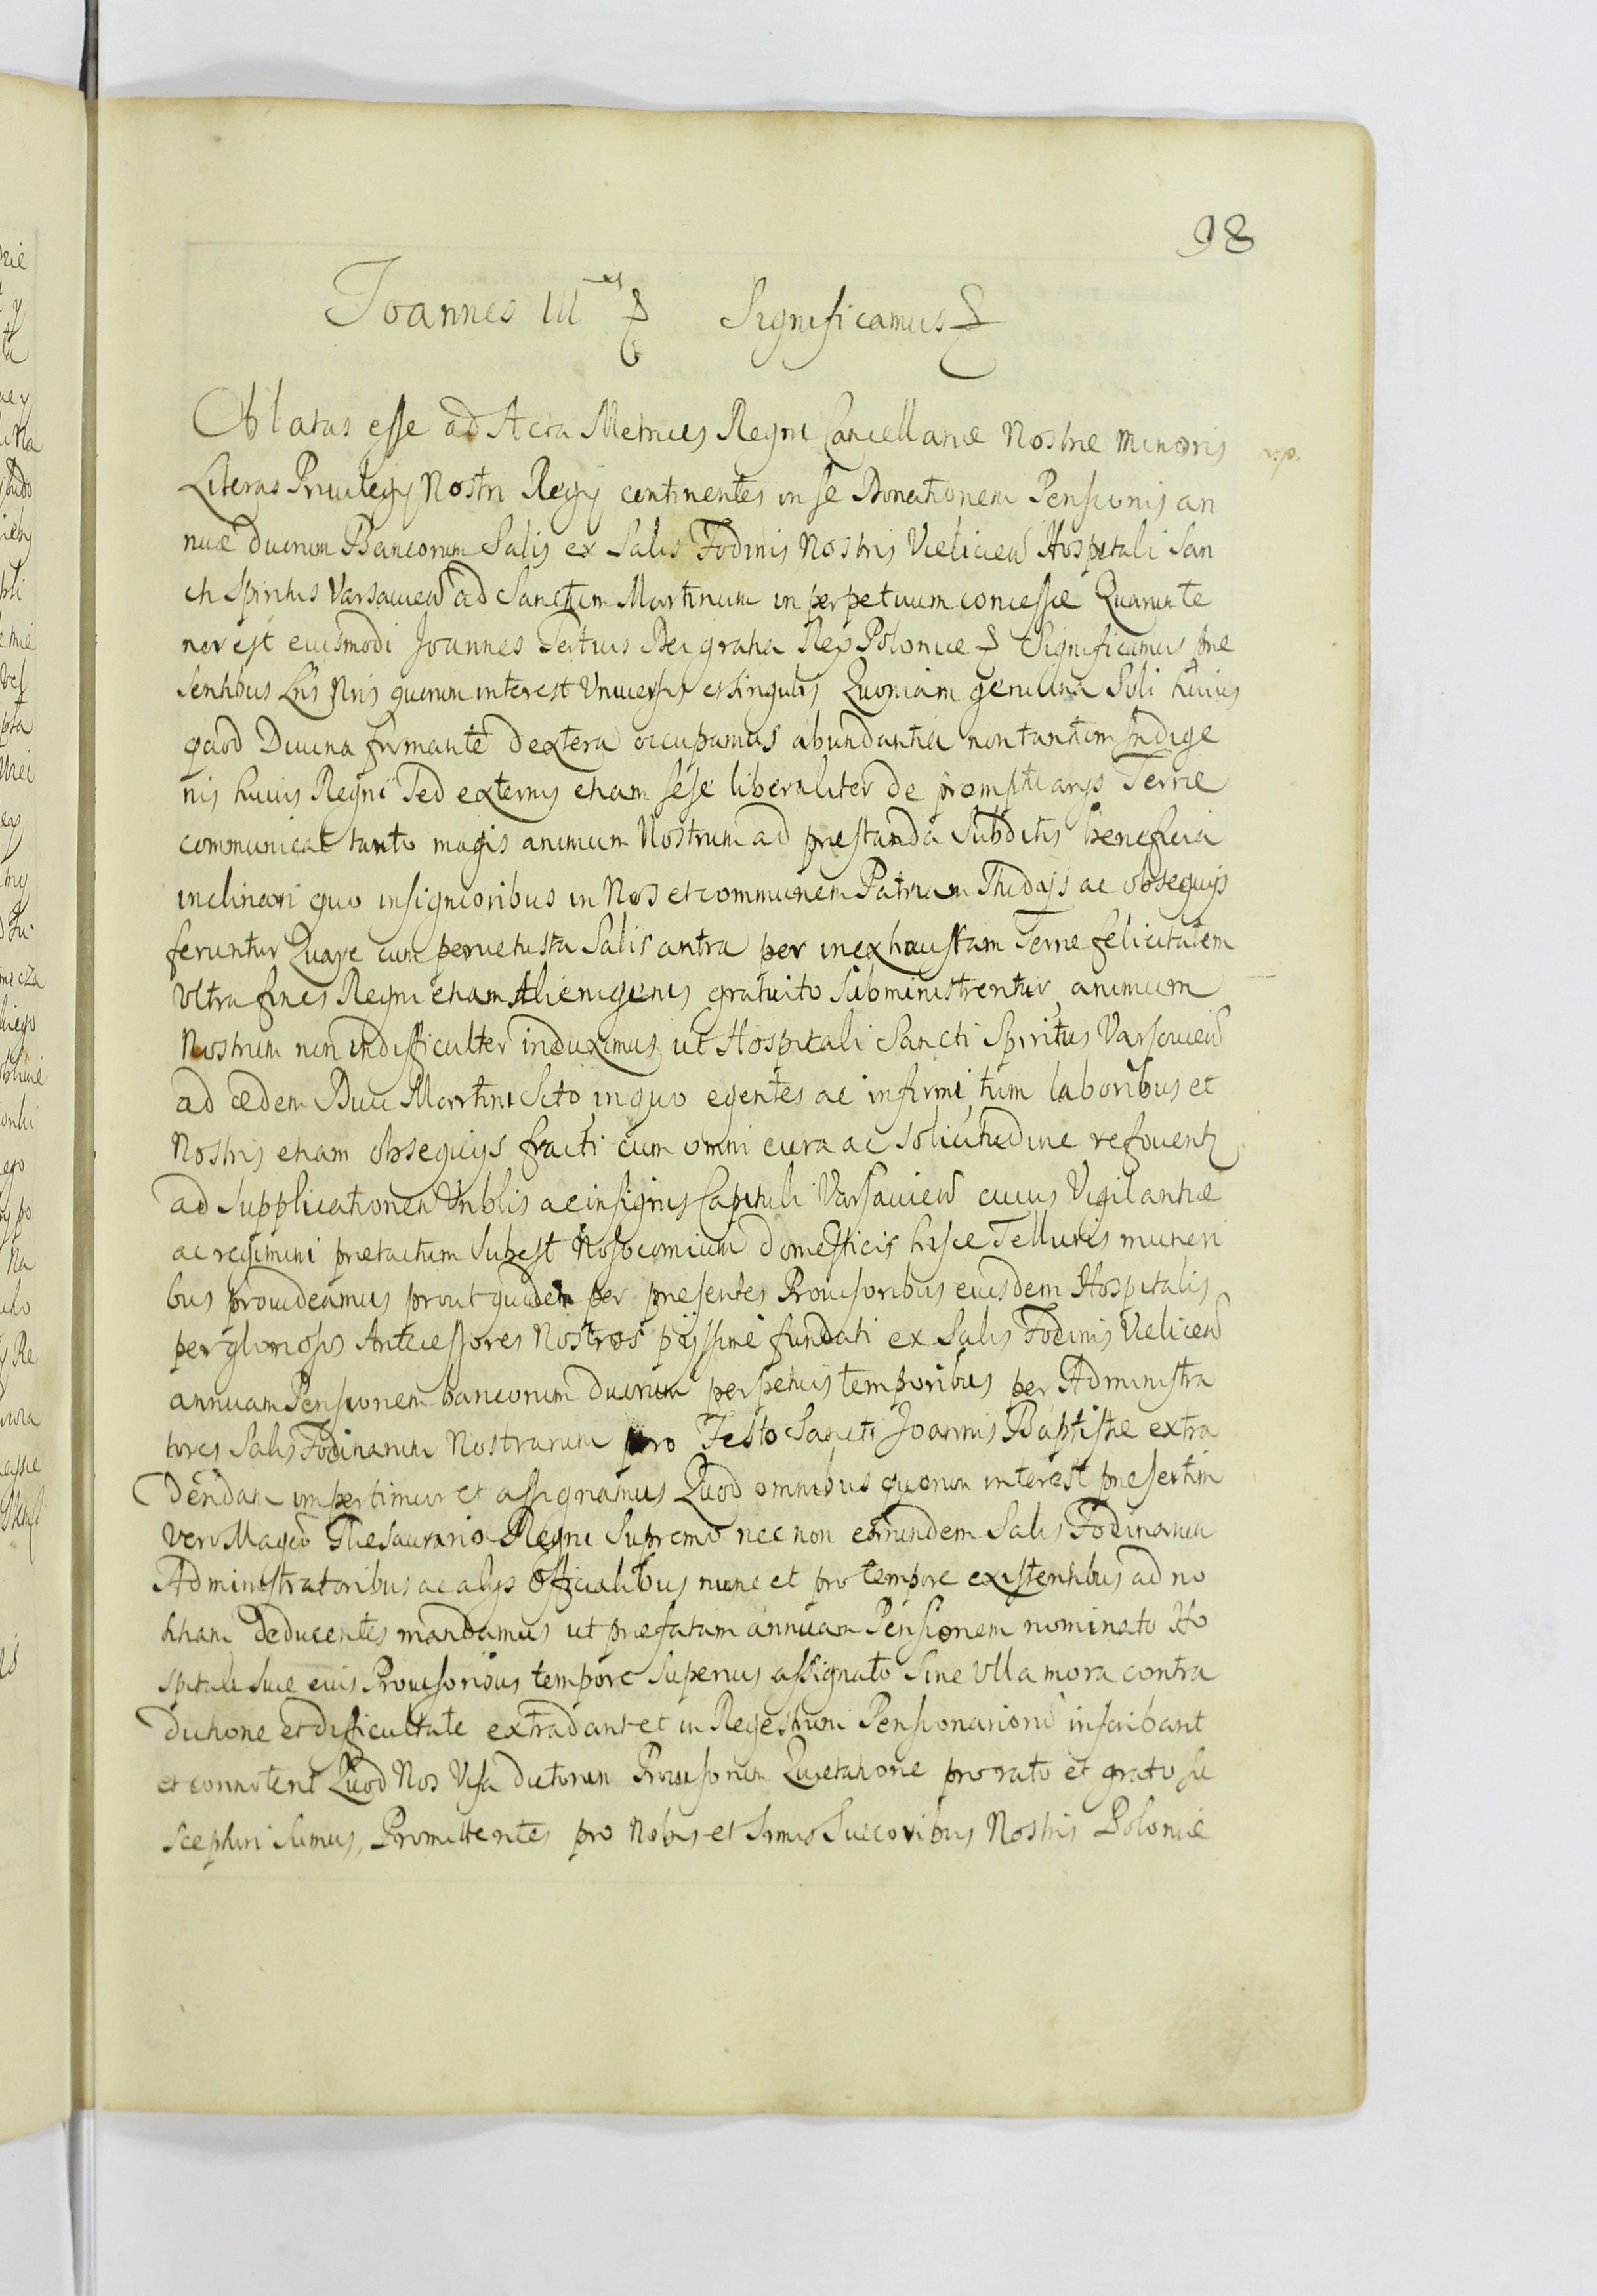 98
Joannes III us & Significamus &
Oblatas esse ad Acta Metrices Regni Cancellariæ Nostræ Minoris
Literas Priuilegij Nostri Regij continentes in se Donationem Pensionis an
nuæ duorum Bancorum Salis ex Salis Fodinis Nostris Vielicieñ Hospitali San
cti Spiritus Varsauieñ ad Sanctum Martinum in perpetuum concessæ Quarum te
nor est eiusmodi Joannes Tertius Dei gratia Rex Poloniæ & Significamus præ
sentibus Lris Nris quorum interest Vniuersis et singulis Quoniam genuina Soli huius
quod Diuina firmante dextera occupamus abundantia non tantum Indige
nis huius Regni Sed externis etiam sese liberaliter de promptuarijs Terræ
communicat tanto magis animum Nostrum ad præstanda Subditis beneficia
inclinari quo insignioribus in Nos et communem Patriam Studijs ac obsequijs
feruntur Quare cum peruetusta Salis antra per inexhaustam Terræ felicitatem
Vltra fines Regni etiam Alienigenis gratuito Subministrentur animum
Nostrum non indifficulter induximus ut Hospitali Sancti Spiritus Varsauieñ
ad ædem Diui Martini Sito in quo egentes ac infirmi tum laboribus et
Nostris etiam obsequijs fracti cum omni cura ac solicitudine refouentz
ad Supplicationem Vnblis ac insignis Capituli Varsauieñ cuius Vigilantiæ
ac regimini prætactum Subest Nosocomium domesticis hisce Telluris muneri
bus prouideamus prout quidem per præsentes Prouisoribus eiusdem Hospitalis
per gloriosos Antecessores Nostros pijssime fundati ex Salis Fodinis Vieliceñ
annuam Pensionem bancorum duorum perpetuis temporibus per Administra
tores Salis Fodinarum Nostrarum pro Festo Sancti Joannis Baptistæ extra
dendam impertimur et assignamus Quod omnibus quorum interest præsertim
vero Magco Thesaurario Regni Supremo nec non earundem Salis Fodinarum
Administratoribus ac alijs Officialibus nunc et pro tempore existentibus ad no
titiam deducentes mandamus ut præfatam annuam Pensionem nominato Ho
spitali siue eius Prouisoribus tempore superius assignato sine Vlla mora contra
dictione et difficultate extradant et in Regestrum Pensionariorũ inscribant
et connotent Quod Nos Visa dictorum Prouisorum Quietatione pro rato et grato su
scepturi sumus, Promittentes pro Nobis et Srmis Succoribus Nostris Poloniæ